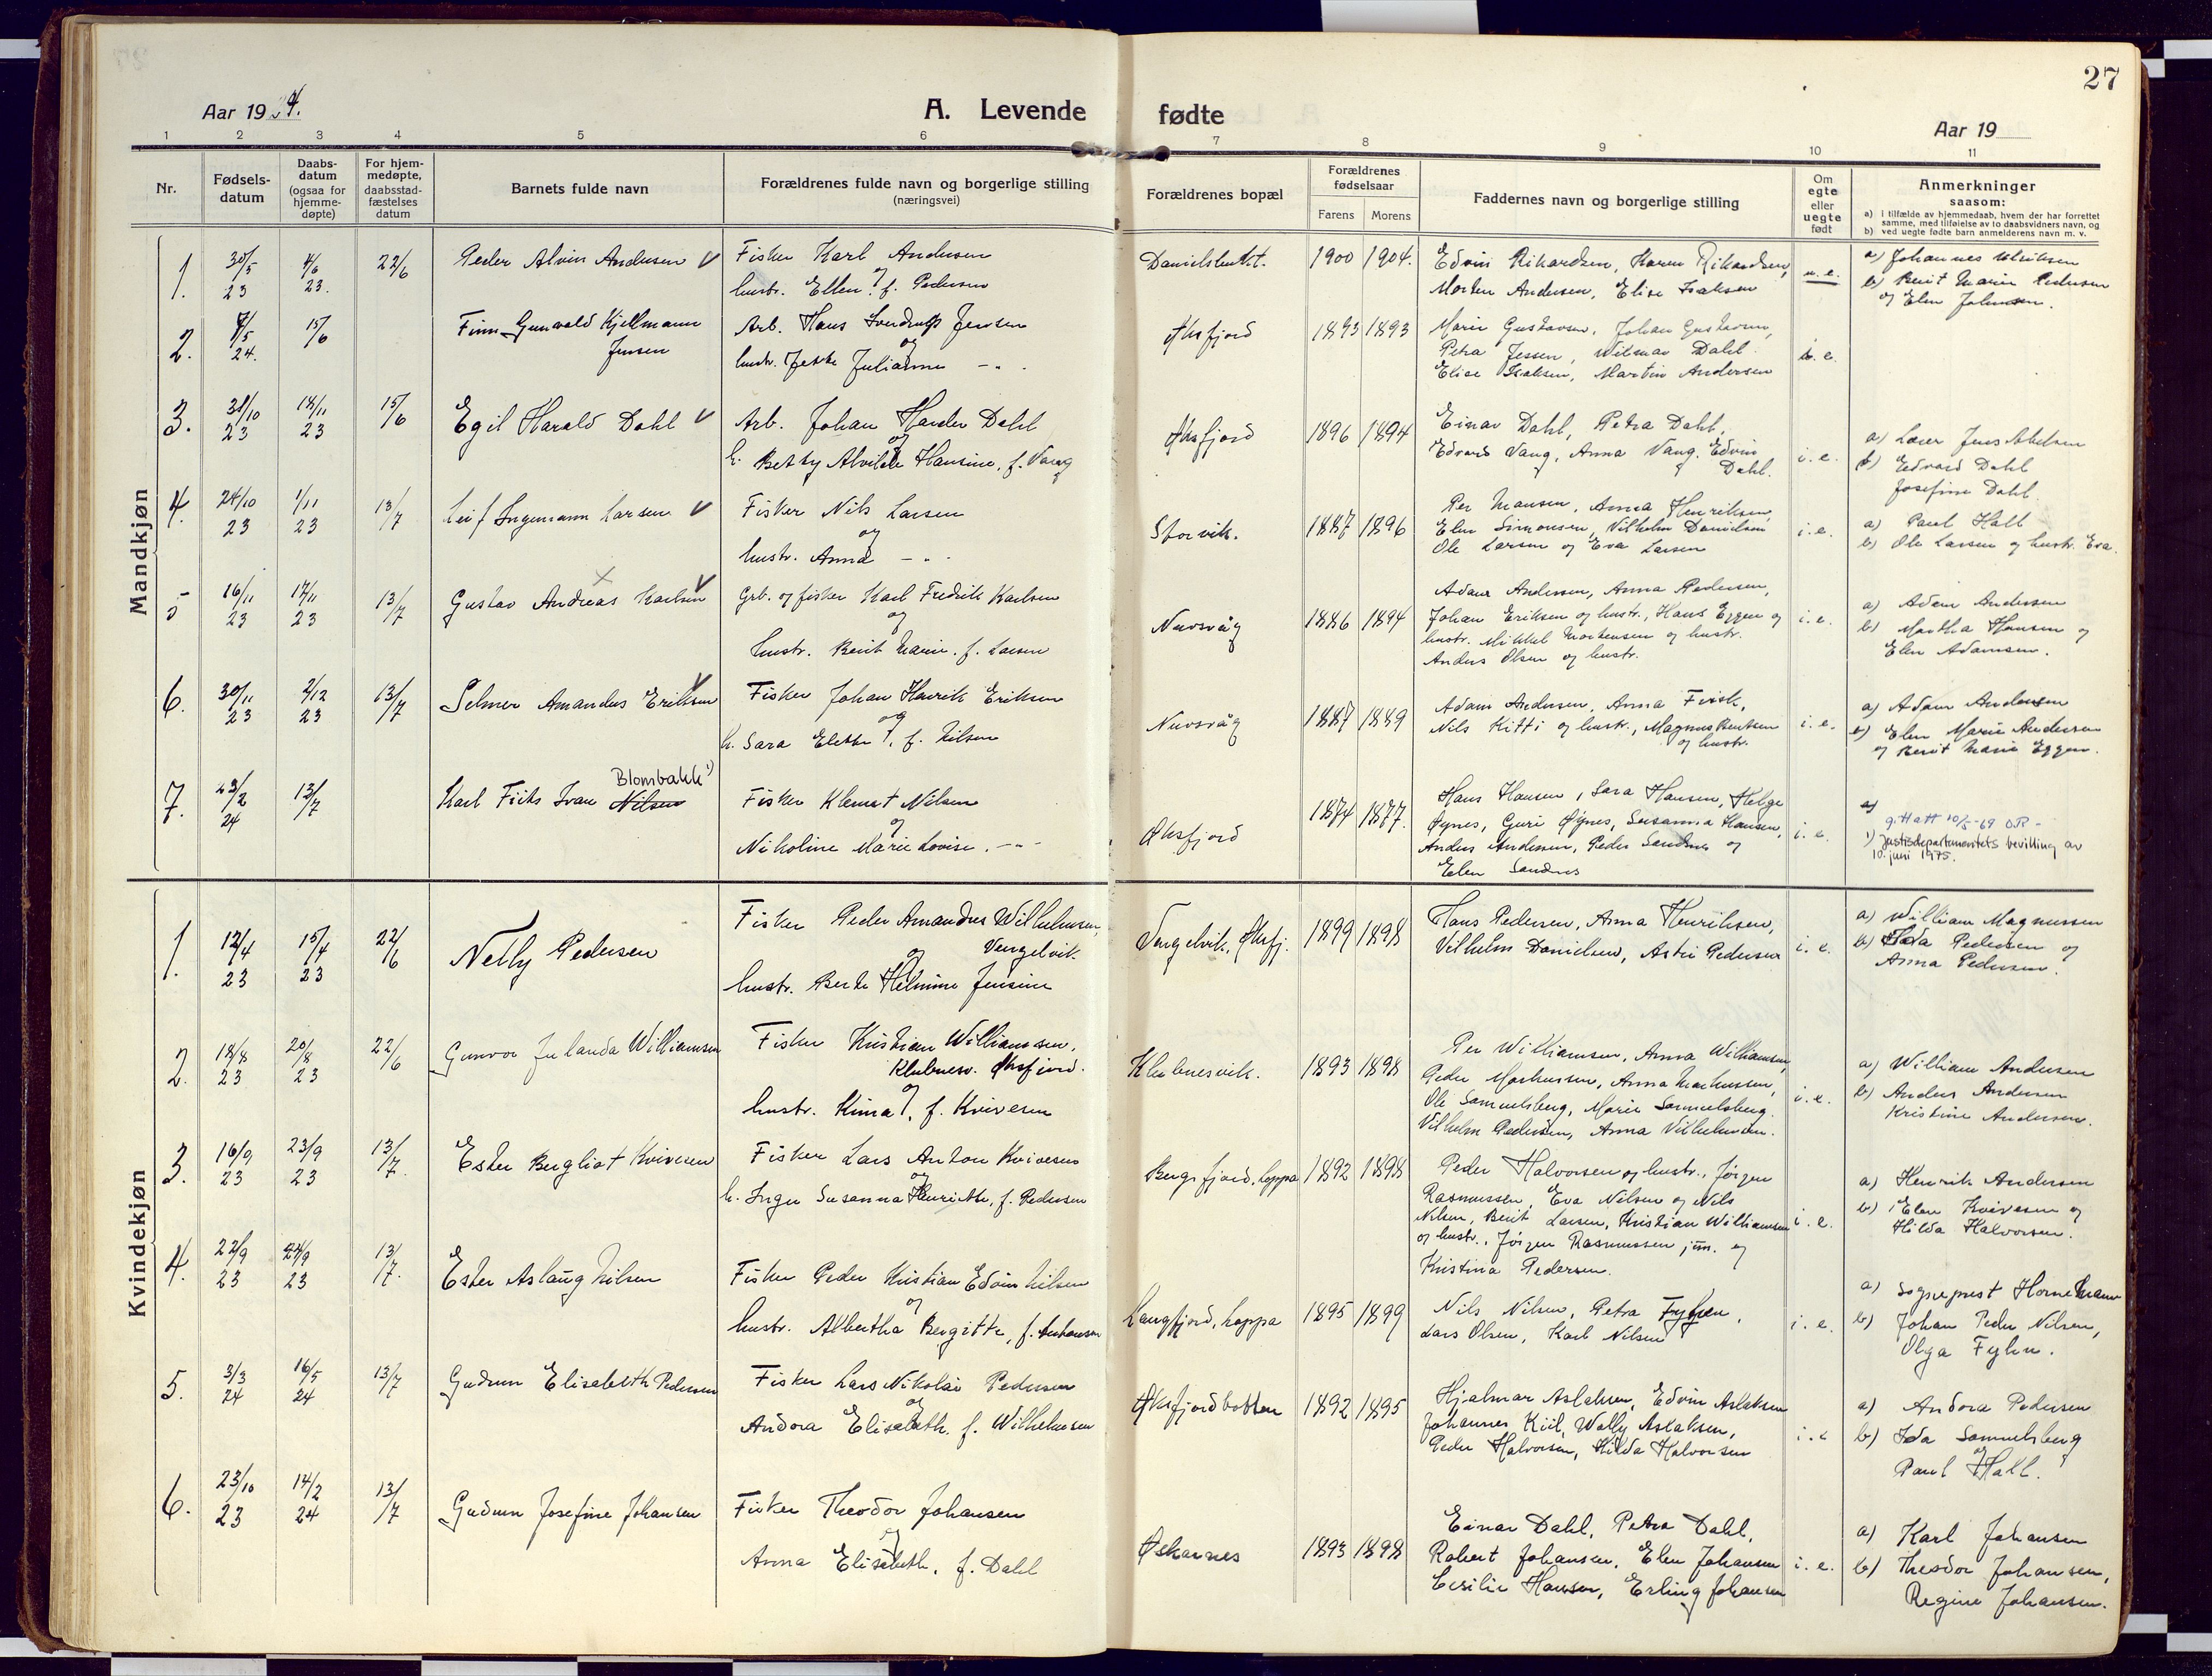 27
Aar 1924.
A. Levende fødte
Aar 19
1 2 3 4 5 6 7 8 9 10 11
Nr.
Fødselsdatum
Daabsdatum (ogsaa for hjemmedøpte)
For hjemmedøpte, daabsstadfæstelses datum
Barnets fulde navn
Forældrenes fulde navn og borgerlige stilling
(næringsvei)
Forældrenes bopæl
Forældrenes fødselsaar
Farens Morens
Faddernes navn og borgerlige stilling
Om egte eller uegte født
Anmerkninger
saasom:
a) i tilfælde av hjemmedaab, hvem der har forrettet
samme, med tilføielse av to daabsvidners navn, og
b) ved uegte fødte barn anmelderens navn m. v.
Mandkjøn
1. 30/5 23 4/6 23. 22/6 Peder Alvin Andersen V
Fisker Karl Andersen
og
hustr. Ellen f. Pedersen
1900 1904.
Edvin Rikardsen, Karen Rikardsen,
Morten Andersen, Elise Isaksen
u.e.
a) Johannes Ulriksen
b) Berit Marie Pedersen
og Elen Johnsen.
2. 7/5 24. 15/6 Finn Gunvald Kjellmann
Jensen
Arb. Hans Jensen
og
hustr. Juliamne - " -
Øksfjord 1893 1893
Marie Gustavsen, Johan Gustavsen,
Petra Jessen, Wilmar Dahl
Elise Isaksen, Martin Andersen
i.e.
3. 31/10 23 18/11 23 15/6 Egil Harald Dahl V
Arb. Johan Hander Dahl
og
h. Betty Alvilde Hansine, f. Vang
Øksfjord 1896 1894
Einar Dahl, Petra Dahl,
Edvard Vang, Anna Vang. Edvin
Dahl.
i.e.
a) Lærer Jens Abelsen
b) Edvard Dahl
Josefine Dahl.
4. 24/10 23 1/11 23 13/7 Leif Ingemann Larsen V
Fisker Nils Larsen
og
hustr. Anna - " -
Storvik. 1887 1896
Per Mansen, Anna Henriksen,
Elen Simonsen, Vilhelm Danielsen
Ole Larsen og Eva Larsen
i.e.
a) Paul Hall
b) Ole Larsen og hustr. Eva.
5 16/11 23 17/11 23 13/7 Gustav Andreas Karlsen V
Grb. og fisker Karl Fredrik Karlsen
og
hustr. Berit Marie. f. Larsen
Nuvsvåg 1886 1894
Adam Andersen, Anna Pedersen,
Johan Eriksen og hustr., Hans Eggen og
hustr. Mikkel Mortensen og hustr.
Anders Olsen og hustr.
i.e.
a) Adam Andersen
b) Martha Hansen og
Elen Adamsen.
6. 30/11 23 2/12 23 13/7 Selmer Amandus Eriksen V
Fisker Johan Henrik Eriksen
og
h. Sara Elette, f. Nilsen
Nuvsvåg 1887 1889
Adam Andersen, Anna Frisk,
Nils Kitti og hustr., Magnus Bentsen
og hustr.
i.e.
a) Adam Andersen
b) Elen Marie Andersen
og Berit Marie Eggen.
7. 23/2 24 13/7 Karl Frits Ivan Nilsen Blombakk 1)
Fisker Klemet Nilsen
og
Nikoline Marie Lovise. - " -
Øksfjord 1874 1877.
Hans Hansen, Sara Hansen, Helge
Øynes, Guri Øynes, Susanna Hansen,
Anders Andersen, Peder Sandnes og
Elen Sandnes
i.e.
a)
g.H att 10/5-69 OR -
1) Justisdepartementets bevilling av
10. juni 1975.
Kvindekjøn
1. 12/4 23 15/4 23 22/6 Nelly Pedersen
Fisker Peder Amandus Wilhelmsen,
Vengelvik.
og
hustr. Berte Helmine Jensine
Vengelvik, Øksfj. 1899 1898
Hans Pedersen, Anna Henriksen,
Vilhelm Danielsen, Astri Pedersen
i.e.
a) William Magnussen
b) Ida Pedersen og
Anna Pedersen.
2. 18/8 23 20/8 23 22/6 Gunvor Julanda Williamsen
Fisker Kristian Williamsen.
Klubnesv. Øksfjord.
og
hustr. Kima, f. Kvivesen
Klubnesvik. 1893 1898
Per Williamsen, Anna Williamsen,
Peder Markussen, Anna Markussen,
Ole Samuelsberg, Marie Samuelsberg.
Vilhelm Pedersen, Anna Vilhelmsen.
i.e.
a) William Andersen
b) Anders Andersen
Kristine Andersen.
3. 16/9 23 23/9 23 13/7 Ester Bergliot Kvivesen
Fisker Lars Anton Kvivesen
og
h. Inga Susanna Henriette, f. Pedersen
Bergsfjord, Loppa 1892 1898
Peder Halvorsen og hustr., Jørgen
Rasmussen, Eva Nilsen og Nils
Nilsen, Berit Larsen, Kristian Williamsen
og hustr., Jørgen Rasmussen jun. og
Kristina Pedersen.
i.e.
a) Henrik Andersen
b) Elen Kvivesen og
Hilda Halvorsen.
4. 22/9 23 24/9 23 13/7. Ester Aslaug Nilsen
Fisker Peder Kristian Edvin Nilsen
og
hustr. Albertha Bergitte, f.
Langfjord, Loppa 1895 1899
Nils Nilsen, Petra Fyhen,
Lars Olsen, Karl Nilsen
i.e.
a) Sogneprest Hornemann
b) Johan Peder Nilsen,
Olga Fyhn.
5. 3/3 24 16/5 24 13/7 Gudrun Elisabeth Pedersen
Fisker Lars Nikolai Pedersen
og
Andora Elisabeth. f. Wilhelmsen
Øksfjordbotten 1892 1895
Hjalmar Aslaksen, Edvin Aslaksen
Johannes Kiil, Wally Aslaksen,
Peder Halvorsen, Hilda Halvorsen
i.e
a) Andora Pedersen
b) Ida Samuelsberg
og
Paul Hall.
6. 23/10 23 14/2 24 13/7 Gudrun Josefine Johansen
Fisker Theodor Johansen
og
Anna Elisabeth, f. Dahl
Øskarnes 1893 1898
Einar Dahl, Petra Dahl,
Robert Johansen, Elen Johansen
Cesilie Hansen, Erling Johansen
i.e.
a) Karl Johansen
b) Theodor Johansen,
Regine Johansen.